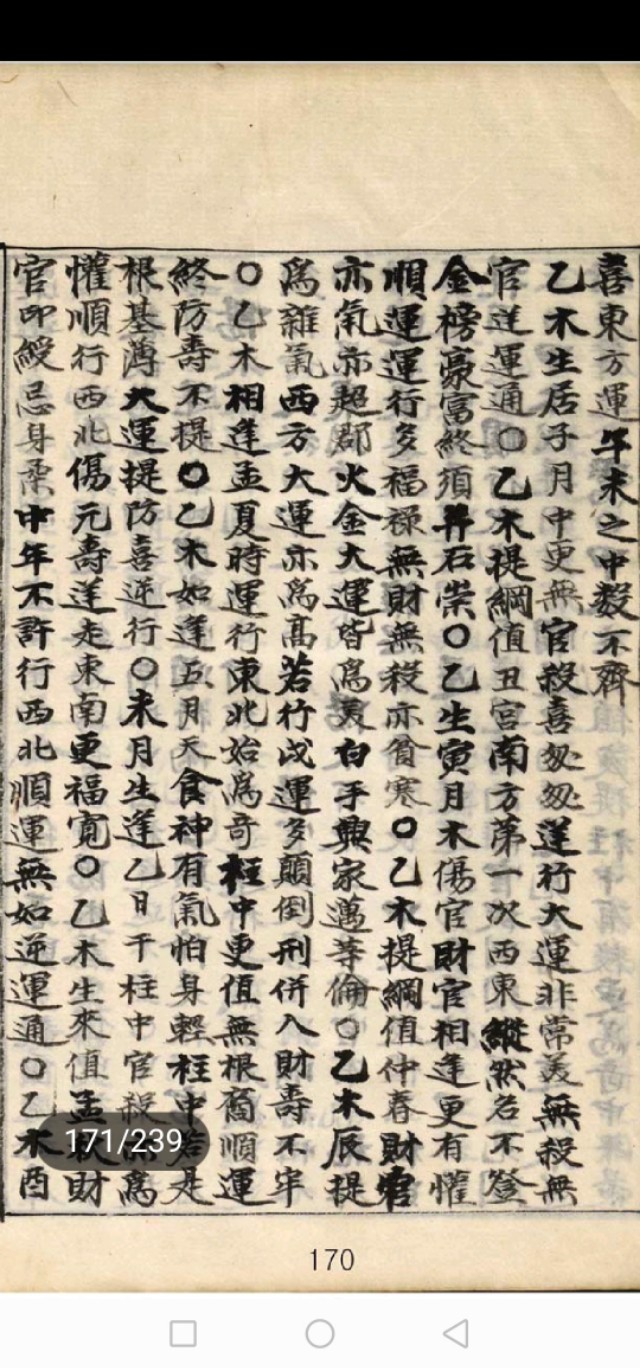 喜東方運午未之中數不齊
乙木生居子月中更無官殺喜忽忽逆行大運非常美無殺無
官送運通○乙木提綱值丑宮南方第一次西東縱然名不登
金榜豪富終須昇石崇○乙生寅月木傷官財官相逢更有懽
順運運行多福祿無財無殺亦貧寒○乙木提綱值仲春財官
亦氣亦超郡火金大運皆爲美白手興家邁等倫○乙木辰提
爲雜氣西方大運亦爲高若行戍運多顛倒刑併入財壽不牢
○乙木相逢孟夏時運行東北始爲奇柱中更值無根裔順運
終防壽不提○乙木如逢五月天食神有氣怕身輕柱中若是
根基薄大運提防喜逆行○未月生逢乙日干柱中官殺爲
懽順行西北傷元壽逆走東南更福寬○乙木生來值孟秋財
官印綬忌身柔中年不許行西北順運無如逆運通○乙木酉
171/239
170